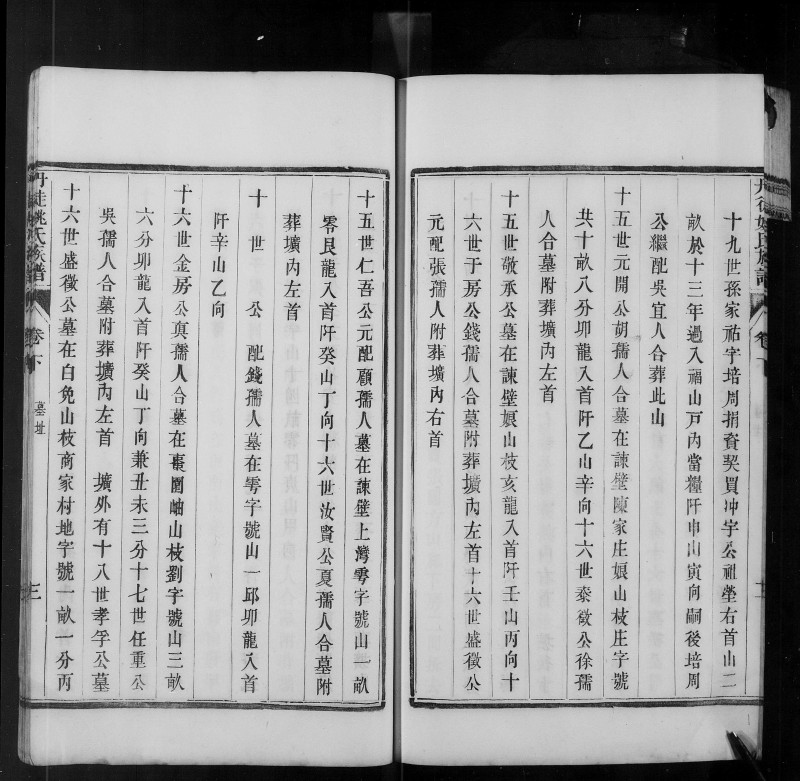 十九世孫家祐字培周捐資契買冲宇公祖塋右首山二
畝於十三年過入福山戸內當糧阡申山寅向嗣後培周
公繼配吳宜人合葬此山
十五世元開公胡孺人合墓在諫壁陳家庄娘山枝庄字號
共十畝八分卯龍入首阡乙山辛向十六世泰徵公徐孺
人合墓附葬壙內左首
十五世敬承公墓在諫壁娘山枝亥龍入首阡壬山丙向十
六世于房公錢孺人合墓附葬壙內左首十六世盛徵公
元配張孺人附葬壙內右首
十五世仁吾公元配顧孺人墓在諫壁上灣雩字號山一畝
零艮龍入首阡癸山丁向十六世汝賢公夏孺人合墓附
葬壙內左首
十 世 公 配錢孺人墓在雩字號山一邱卯龍入首
阡辛山乙向
十六世金房公奐孺人合墓在棗園岫山枝劉字號山三畝
六分卯龍入首阡癸山丁向兼丑未三分十七世任重公
吳孺人合墓附葬壙內左首 壙外有十八世孝孚公墓
十六世盛徵公墓在白免山枝商家村地字號一畝一分丙
丹徒姚氏族譜 卷下 墓址